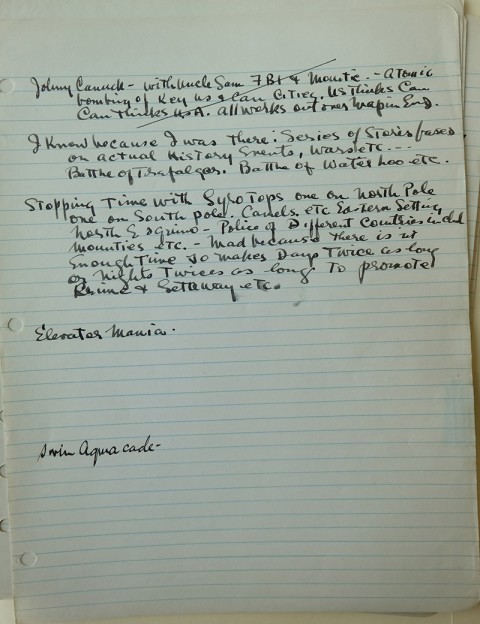 Johny Canuck - with Uncle Sam FBI & Mountie. - Atomic
bombing of Key US & Can Cities, US thinks Can
Can thinks USA. all works out over wap in End.
I Know because I was there: Series of Stories based
on actual History Events, Wars etc. --
Battle of Trafalgar. Battle of Water loo etc.
Stopping Time with Gyro Tops one on North Pole
one on South pole. Camels. etc Eastern Setting
North Esquimo - Police of Different Countries includ
mounties etc. - Mad because there isn't
Enough Time so makes Days Twice as long
or Nights Twices as long to promote
Crime & Getaway etc.
Elevator Mania.
Swim Aquacade -